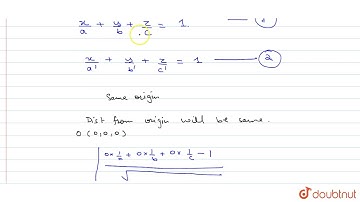 x/a + y/b + z/c = 1. —— 1
x/a' + y/b' + z/c' = 1 —— 2
Same origin
Dist from origin will be same.
O (0,0,0)
| 0×1/a + 0×1/b + 0×1/c − 1
√
doubtnut